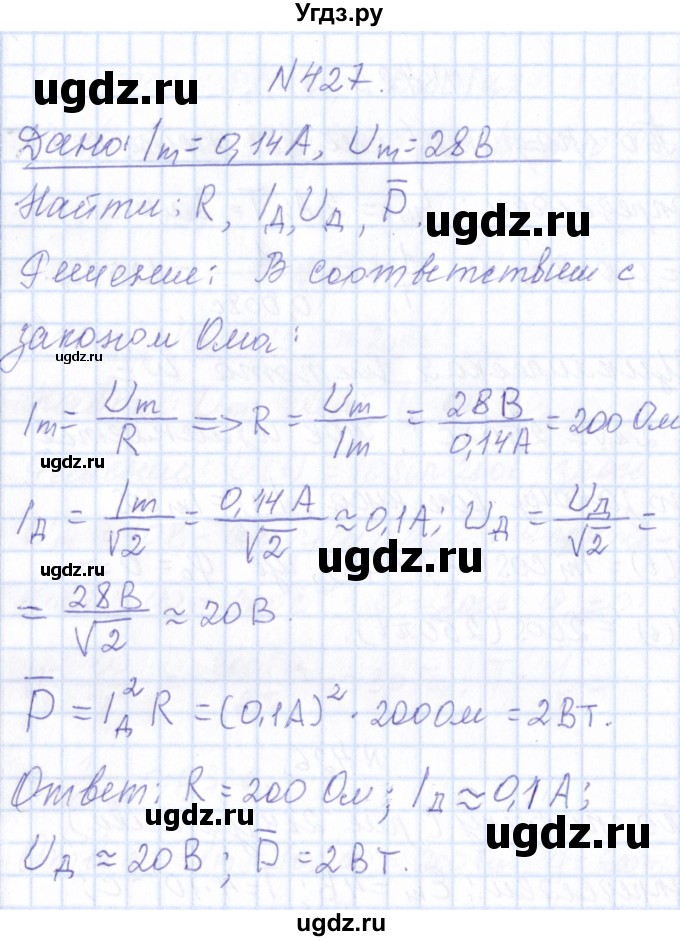 Угдз.ру
N 427.
ugdz.ru
Дано: Im = 0,14 А, Um = 28 В
Найти: R, Iд, Uд, P̅.
ugdz.ru
Решение: В соответствии с
ugdz.ru
законом Ома:
ugdz.ru
Im = Um/R => R = Um/Im = 28 В/0,14 А = 200 Ом
ugdz.ru
ugdz.ru
Iд = Im/√2 = 0,14 А/√2 ≈ 0,1 А; Uд = Uд/√2 =
ugdz.ru
ugdz.ru
= 28 В/√2 ≈ 20 В.
P̅ = Iд² R = (0,1 А)² · 200 Ом = 2 Вт.
Ответ: R = 200 Ом; Iд ≈ 0,1 А;
ugdz.ru
ugdz.ru
Uд ≈ 20 В; P̅ = 2 Вт.
ugdz.ru